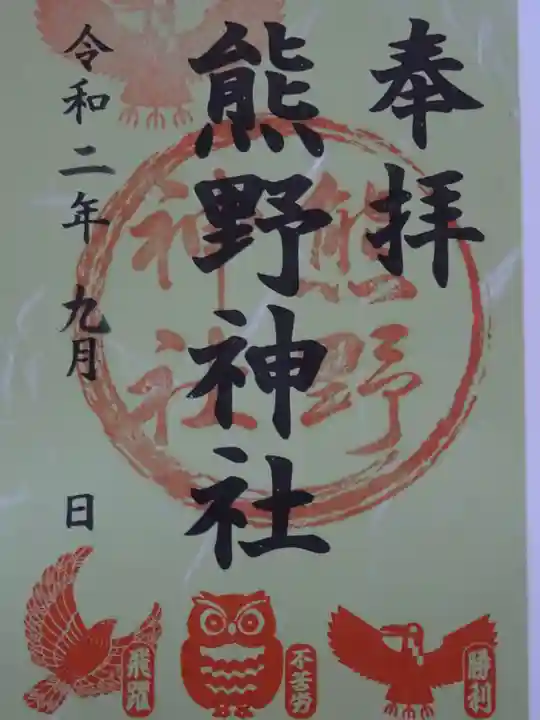 奉拝
熊野神社
令和二年 九月 日
熊野
神社
飛躍
不苦労
勝利